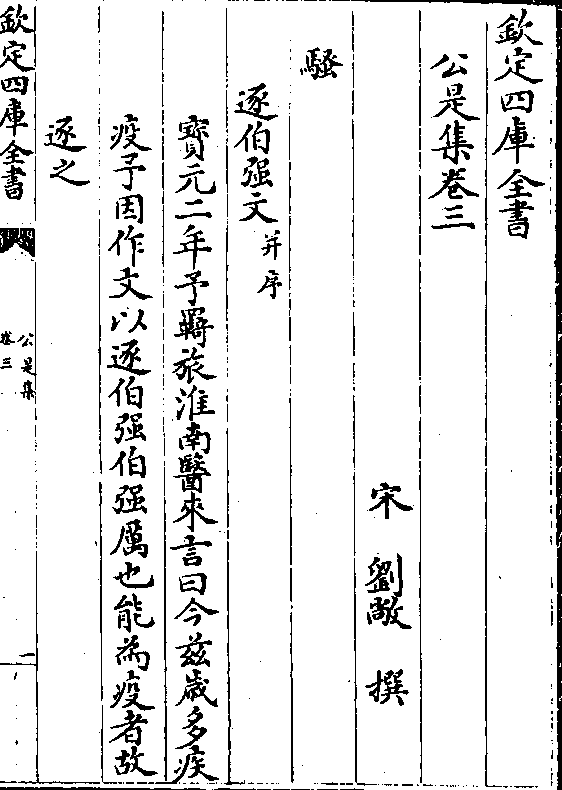 欽定四庫全書
公是集卷三
宋 劉敞 撰
騷
逐伯强文并序
寳元二年予羇旅淮南醫來言曰今兹歲多疾
疫予因作文以逐伯强伯强厲也能為疫者故
逐之
欽定四庫全書
公是集
卷三
一